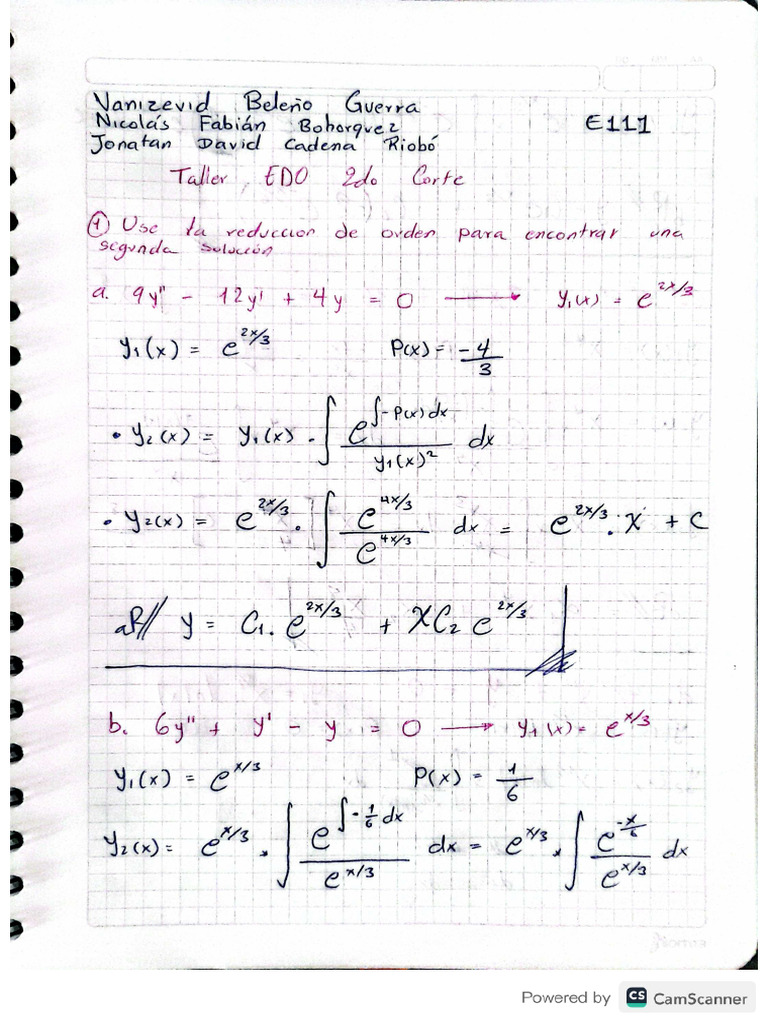 Vanizevid Beleño Guerra
Nicolás Fabián Bohorquez E111
Jonatan David Cadena Riobó
Taller, EDO 2do Corte
① Use la reduccion de orden para encontrar una
segunda solución
a. 9y'' - 12y' + 4y = 0 ⟶ y₁(x) = e^{2x/3}
y₁(x) = e^{2x/3} P(x) = -4/3
• y₂(x) = y₁(x) · ∫ e^{∫-P(x)dx} / y₁(x)² dx
• y₂(x) = e^{2x/3} · ∫ e^{4x/3} / e^{4x/3} dx = e^{2x/3} · x + C
aR// y = C₁ · e^{2x/3} + XC₂ e^{2x/3}
b. 6y'' + y' - y = 0 ⟶ y₁(x) = e^{x/3}
y₁(x) = e^{x/3} P(x) = 1/6
y₂(x) = e^{x/3} · ∫ e^{∫-1/6 dx} / e^{x/3} dx = e^{x/3} · ∫ e^{-x/6} / e^{x/3} dx
Norma
Powered by CS CamScanner